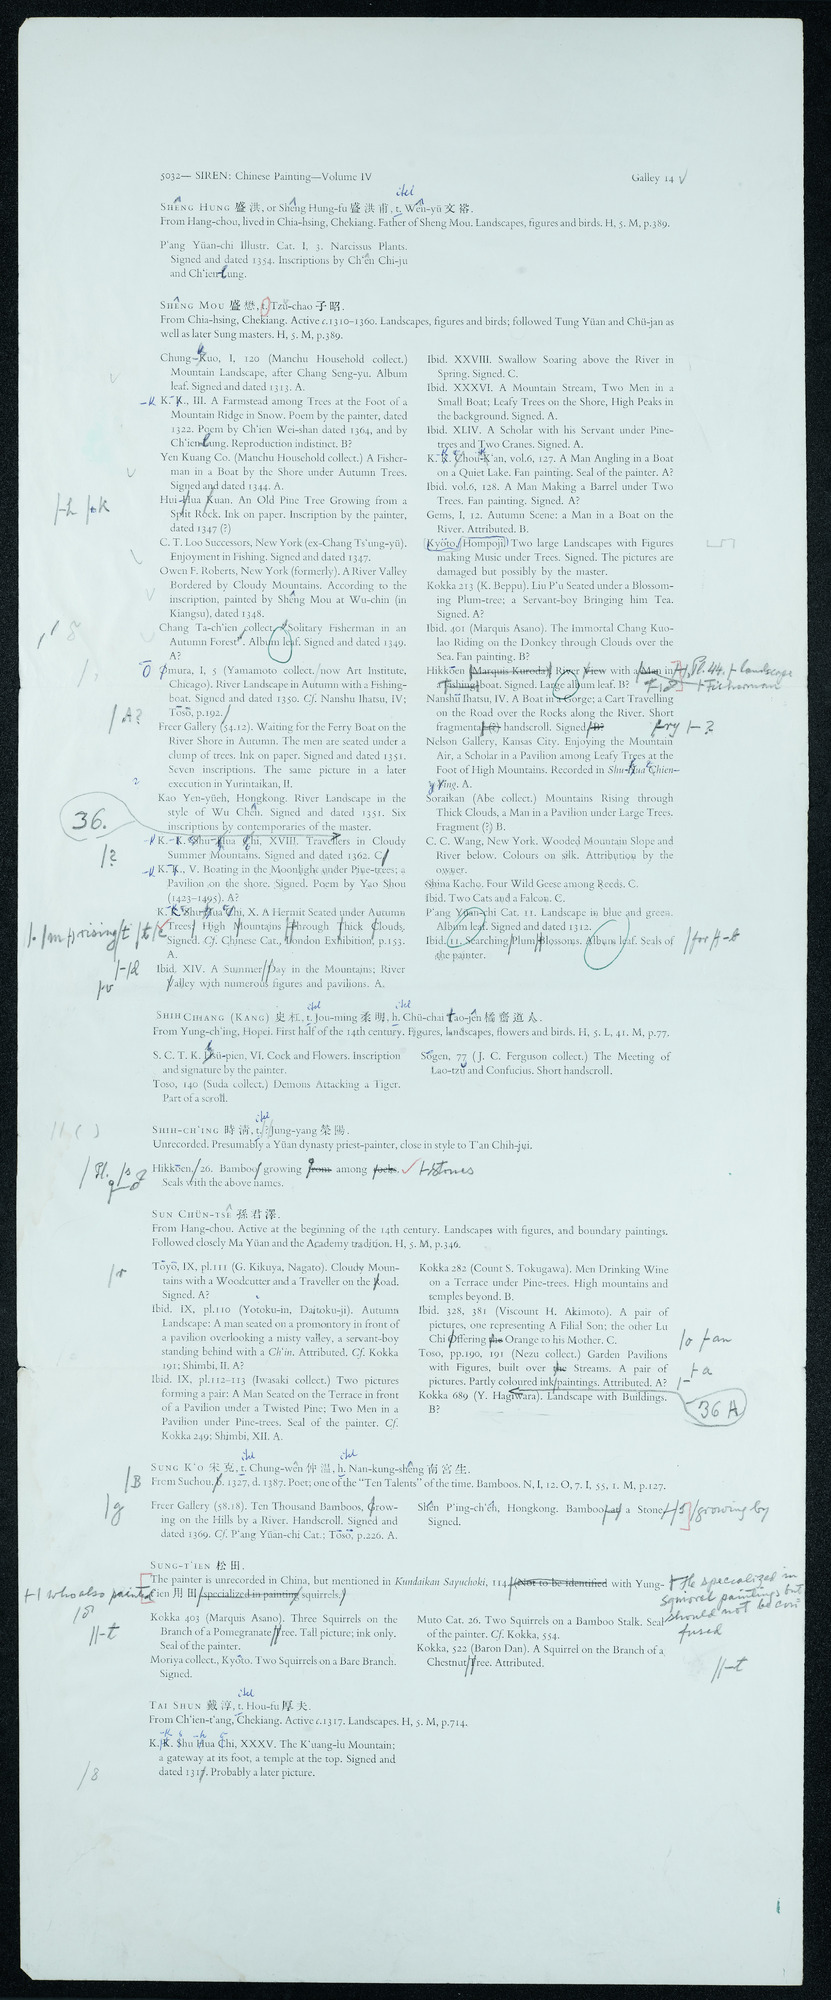 5032— SIREN: Chinese Painting—Volume IV
Galley 14 √
ital
SHÊNG HUNG 盛洪, or Shêng Hung-fu 盛洪甫, t. Wên-yü 文裕.
From Hang-chou, lived in Chia-hsing, Chekiang. Father of Sheng Mou. Landscapes, figures and birds. H, 5. M, p.389.
P'ang Yüan-chi Illustr. Cat. I, 3. Narcissus Plants.
Signed and dated 1354. Inscriptions by Ch'ên Chi-ju
and Ch'ien-lung.
SHÊNG MOU 盛懋, t. Tzŭ-chao 子昭.
From Chia-hsing, Chekiang. Active c.1310–1360. Landscapes, figures and birds; followed Tung Yüan and Chü-jan as
well as later Sung masters. H, 5. M, p.389.
Chung-Kuo, I, 120 (Manchu Household collect.)
Mountain Landscape, after Chang Seng-yu. Album
leaf. Signed and dated 1313. A.
K.-K., III. A Farmstead among Trees at the Foot of a
Mountain Ridge in Snow. Poem by the painter, dated
1322. Poem by Ch'ien Wei-shan dated 1364, and by
Ch'ien-lung. Reproduction indistinct. B?
Yen Kuang Co. (Manchu Household collect.) A Fisher-
man in a Boat by the Shore under Autumn Trees.
Signed and dated 1344. A.
Hui-Hua Kuan. An Old Pine Tree Growing from a
Split Rock. Ink on paper. Inscription by the painter,
dated 1347 (?)
C. T. Loo Successors, New York (ex-Chang Ts'ung-yü).
Enjoyment in Fishing. Signed and dated 1347.
Owen F. Roberts, New York (formerly). A River Valley
Bordered by Cloudy Mountains. According to the
inscription, painted by Shêng Mou at Wu-chin (in
Kiangsu), dated 1348.
Chang Ta-ch'ien collect. Solitary Fisherman in an
Autumn Forest. Album leaf. Signed and dated 1349.
A?
Omura, I, 5 (Yamamoto collect./now Art Institute,
Chicago). River Landscape in Autumn with a Fishing-
boat. Signed and dated 1350. Cf. Nanshu Ihatsu, IV;
Tōsō, p.192.
Freer Gallery (54.12). Waiting for the Ferry Boat on the
River Shore in Autumn. The men are seated under a
clump of trees. Ink on paper. Signed and dated 1351.
Seven inscriptions. The same picture in a later
execution in Yurintaikan, II.
Kao Yen-yüeh, Hongkong. River Landscape in the
style of Wu Chên. Signed and dated 1351. Six
inscriptions by contemporaries of the master.
K.-K. Shu-Hua Chi, XVIII. Travellers in Cloudy
Summer Mountains. Signed and dated 1362. C
K.-K., V. Boating in the Moonlight under Pine-trees; a
Pavilion on the shore. Signed. Poem by Yao Shou
(1423–1495). A?
K.-K. Shu-Hua Chi, X. A Hermit Seated under Autumn
Trees High Mountains Through Thick Clouds.
Signed. Cf. Chinese Cat., London Exhibition, p.153.
A.
Ibid. XIV. A Summer Day in the Mountains; River
Valley with numerous figures and pavilions. A.
Ibid. XXVIII. Swallow Soaring above the River in
Spring. Signed. C.
Ibid. XXXVI. A Mountain Stream, Two Men in a
Small Boat; Leafy Trees on the Shore, High Peaks in
the background. Signed. A.
Ibid. XLIV. A Scholar with his Servant under Pine-
trees and Two Cranes. Signed. A.
K.-K. Chou-K'an, vol.6, 127. A Man Angling in a Boat
on a Quiet Lake. Fan painting. Seal of the painter. A?
Ibid. vol.6, 128. A Man Making a Barrel under Two
Trees. Fan painting. Signed. A?
Gems, I, 12. Autumn Scene: a Man in a Boat on the
River. Attributed. B.
Kyōto (Hompoji) Two large Landscapes with Figures
making Music under Trees. Signed. The pictures are
damaged but possibly by the master.
Kokka 213 (K. Beppu). Liu P'u Seated under a Blossom-
ing Plum-tree; a Servant-boy Bringing him Tea.
Signed. A?
Ibid. 401 (Marquis Asano). The Immortal Chang Kuo-
lao Riding on the Donkey through Clouds over the
Sea. Fan painting. B?
Hikkōen (Marquis Kuroda) River View with a Man in
a Fishing boat. Signed. Large album leaf. B?
Pl. 44. + landscape
+ Fisherman
Nanshū Ihatsu, IV. A Boat in a Gorge; a Cart Travelling
on the Road over the Rocks along the River. Short
fragment (?) handscroll. Signed.
Nelson Gallery, Kansas City. Enjoying the Mountain
Air, a Scholar in a Pavilion among Leafy Trees at the
Foot of High Mountains. Recorded in Shu-Hua Chien-
Ying. A.
Soraikan (Abe collect.) Mountains Rising through
Thick Clouds, a Man in a Pavilion under Large Trees.
Fragment (?) B.
C. C. Wang, New York. Wooded Mountain Slope and
River below. Colours on silk. Attribution by the
owner.
Shina Kacho. Four Wild Geese among Reeds. C.
Ibid. Two Cats and a Falcon. C.
P'ang Yüan-chi Cat. 11. Landscape in blue and green.
Album leaf. Signed and dated 1312.
Ibid. 11. Searching Plum Blossoms. Album leaf. Seals of
the painter.
/-h /-k
/A?
36.
/?
rising/t /t/c
/-/d
/for H-b
ital ital
SHIH CHIANG (KANG) 史杠, t. Jou-ming 柔明, h. Chü-chai Tao-jên 橘齋道人.
From Yung-ch'ing, Hopei. First half of the 14th century. Figures, landscapes, flowers and birds. H, 5. L, 41. M, p.77.
S. C. T. K. Hsü-pien, VI. Cock and Flowers. Inscription
and signature by the painter.
Toso, 140 (Suda collect.) Demons Attacking a Tiger.
Part of a scroll.
Sōgen, 77 (J. C. Ferguson collect.) The Meeting of
Lao-tzŭ and Confucius. Short handscroll.
ital
SHIH-CH'ING 時淸, t. Jung-yang 榮陽.
Unrecorded. Presumably a Yüan dynasty priest-painter, close in style to T'an Chih-jui.
Hikkōen, 26. Bamboo growing from among rocks. √ +stones
Seals with the above names.
/Pl.
SUN CHÜN-TSÊ 孫君澤.
From Hang-chou. Active at the beginning of the 14th century. Landscapes with figures, and boundary paintings.
Followed closely Ma Yüan and the Academy tradition. H, 5. M, p.346.
Tōyō, IX, pl.111 (G. Kikuya, Nagato). Cloudy Moun-
tains with a Woodcutter and a Traveller on the Road.
Signed. A?
Ibid. IX, pl.110 (Yotoku-in, Daitoku-ji). Autumn
Landscape: A man seated on a promontory in front of
a pavilion overlooking a misty valley, a servant-boy
standing behind with a Ch'in. Attributed. Cf. Kokka
191; Shimbi, II. A?
Ibid. IX, pl.112–113 (Iwasaki collect.) Two pictures
forming a pair: A Man Seated on the Terrace in front
of a Pavilion under a Twisted Pine; Two Men in a
Pavilion under Pine-trees. Seal of the painter. Cf.
Kokka 249; Shimbi, XII. A.
Kokka 282 (Count S. Tokugawa). Men Drinking Wine
on a Terrace under Pine-trees. High mountains and
temples beyond. B.
Ibid. 328, 381 (Viscount H. Akimoto). A pair of
pictures, one representing A Filial Son; the other Lu
Chi Offering the Orange to his Mother. C.
Toso, pp.190, 191 (Nezu collect.) Garden Pavilions
with Figures, built over the Streams. A pair of
pictures. Partly coloured ink paintings. Attributed. A?
Kokka 689 (Y. Hagiwara). Landscape with Buildings.
B?
/r
/o +an
+a
36 A
ital ital
SUNG K'O 宋克, t. Chung-wên 仲溫, h. Nan-kung-shêng 南宮生.
From Suchou, b. 1327, d. 1387. Poet; one of the "Ten Talents" of the time. Bamboos. N, I, 12. O, 7. I, 55, 1. M, p.127.
Freer Gallery (58.18). Ten Thousand Bamboos, Grow-
ing on the Hills by a River. Handscroll. Signed and
dated 1369. Cf. P'ang Yüan-chi Cat.; Tōsō, p.226. A.
Shên P'ing-ch'ên, Hongkong. Bamboo at a Stone
Signed.
/B
/g
growing by
SUNG-T'IEN 松田.
The painter is unrecorded in China, but mentioned in Kundaikan Sayuchoki, 114 (Not to be identified with Yung-
t'ien 用田 specialized in painting squirrels.)
+/ who also painted
+ He specialized in
squirrel paintings but
should not be con-
fused
Kokka 403 (Marquis Asano). Three Squirrels on the
Branch of a Pomegranate Tree. Tall picture; ink only.
Seal of the painter.
Moriya collect., Kyōto. Two Squirrels on a Bare Branch.
Signed.
Muto Cat. 26. Two Squirrels on a Bamboo Stalk. Seal
of the painter. Cf. Kokka, 554.
Kokka, 522 (Baron Dan). A Squirrel on the Branch of a
Chestnut Tree. Attributed.
//-t
//-t
ital
TAI SHUN 戴淳, t. Hou-fu 厚夫.
From Ch'ien-t'ang, Chekiang. Active c.1317. Landscapes. H, 5. M, p.714.
K.-K. Shu-Hua Chi, XXXV. The K'uang-lu Mountain;
a gateway at its foot, a temple at the top. Signed and
dated 1317. Probably a later picture.
/8